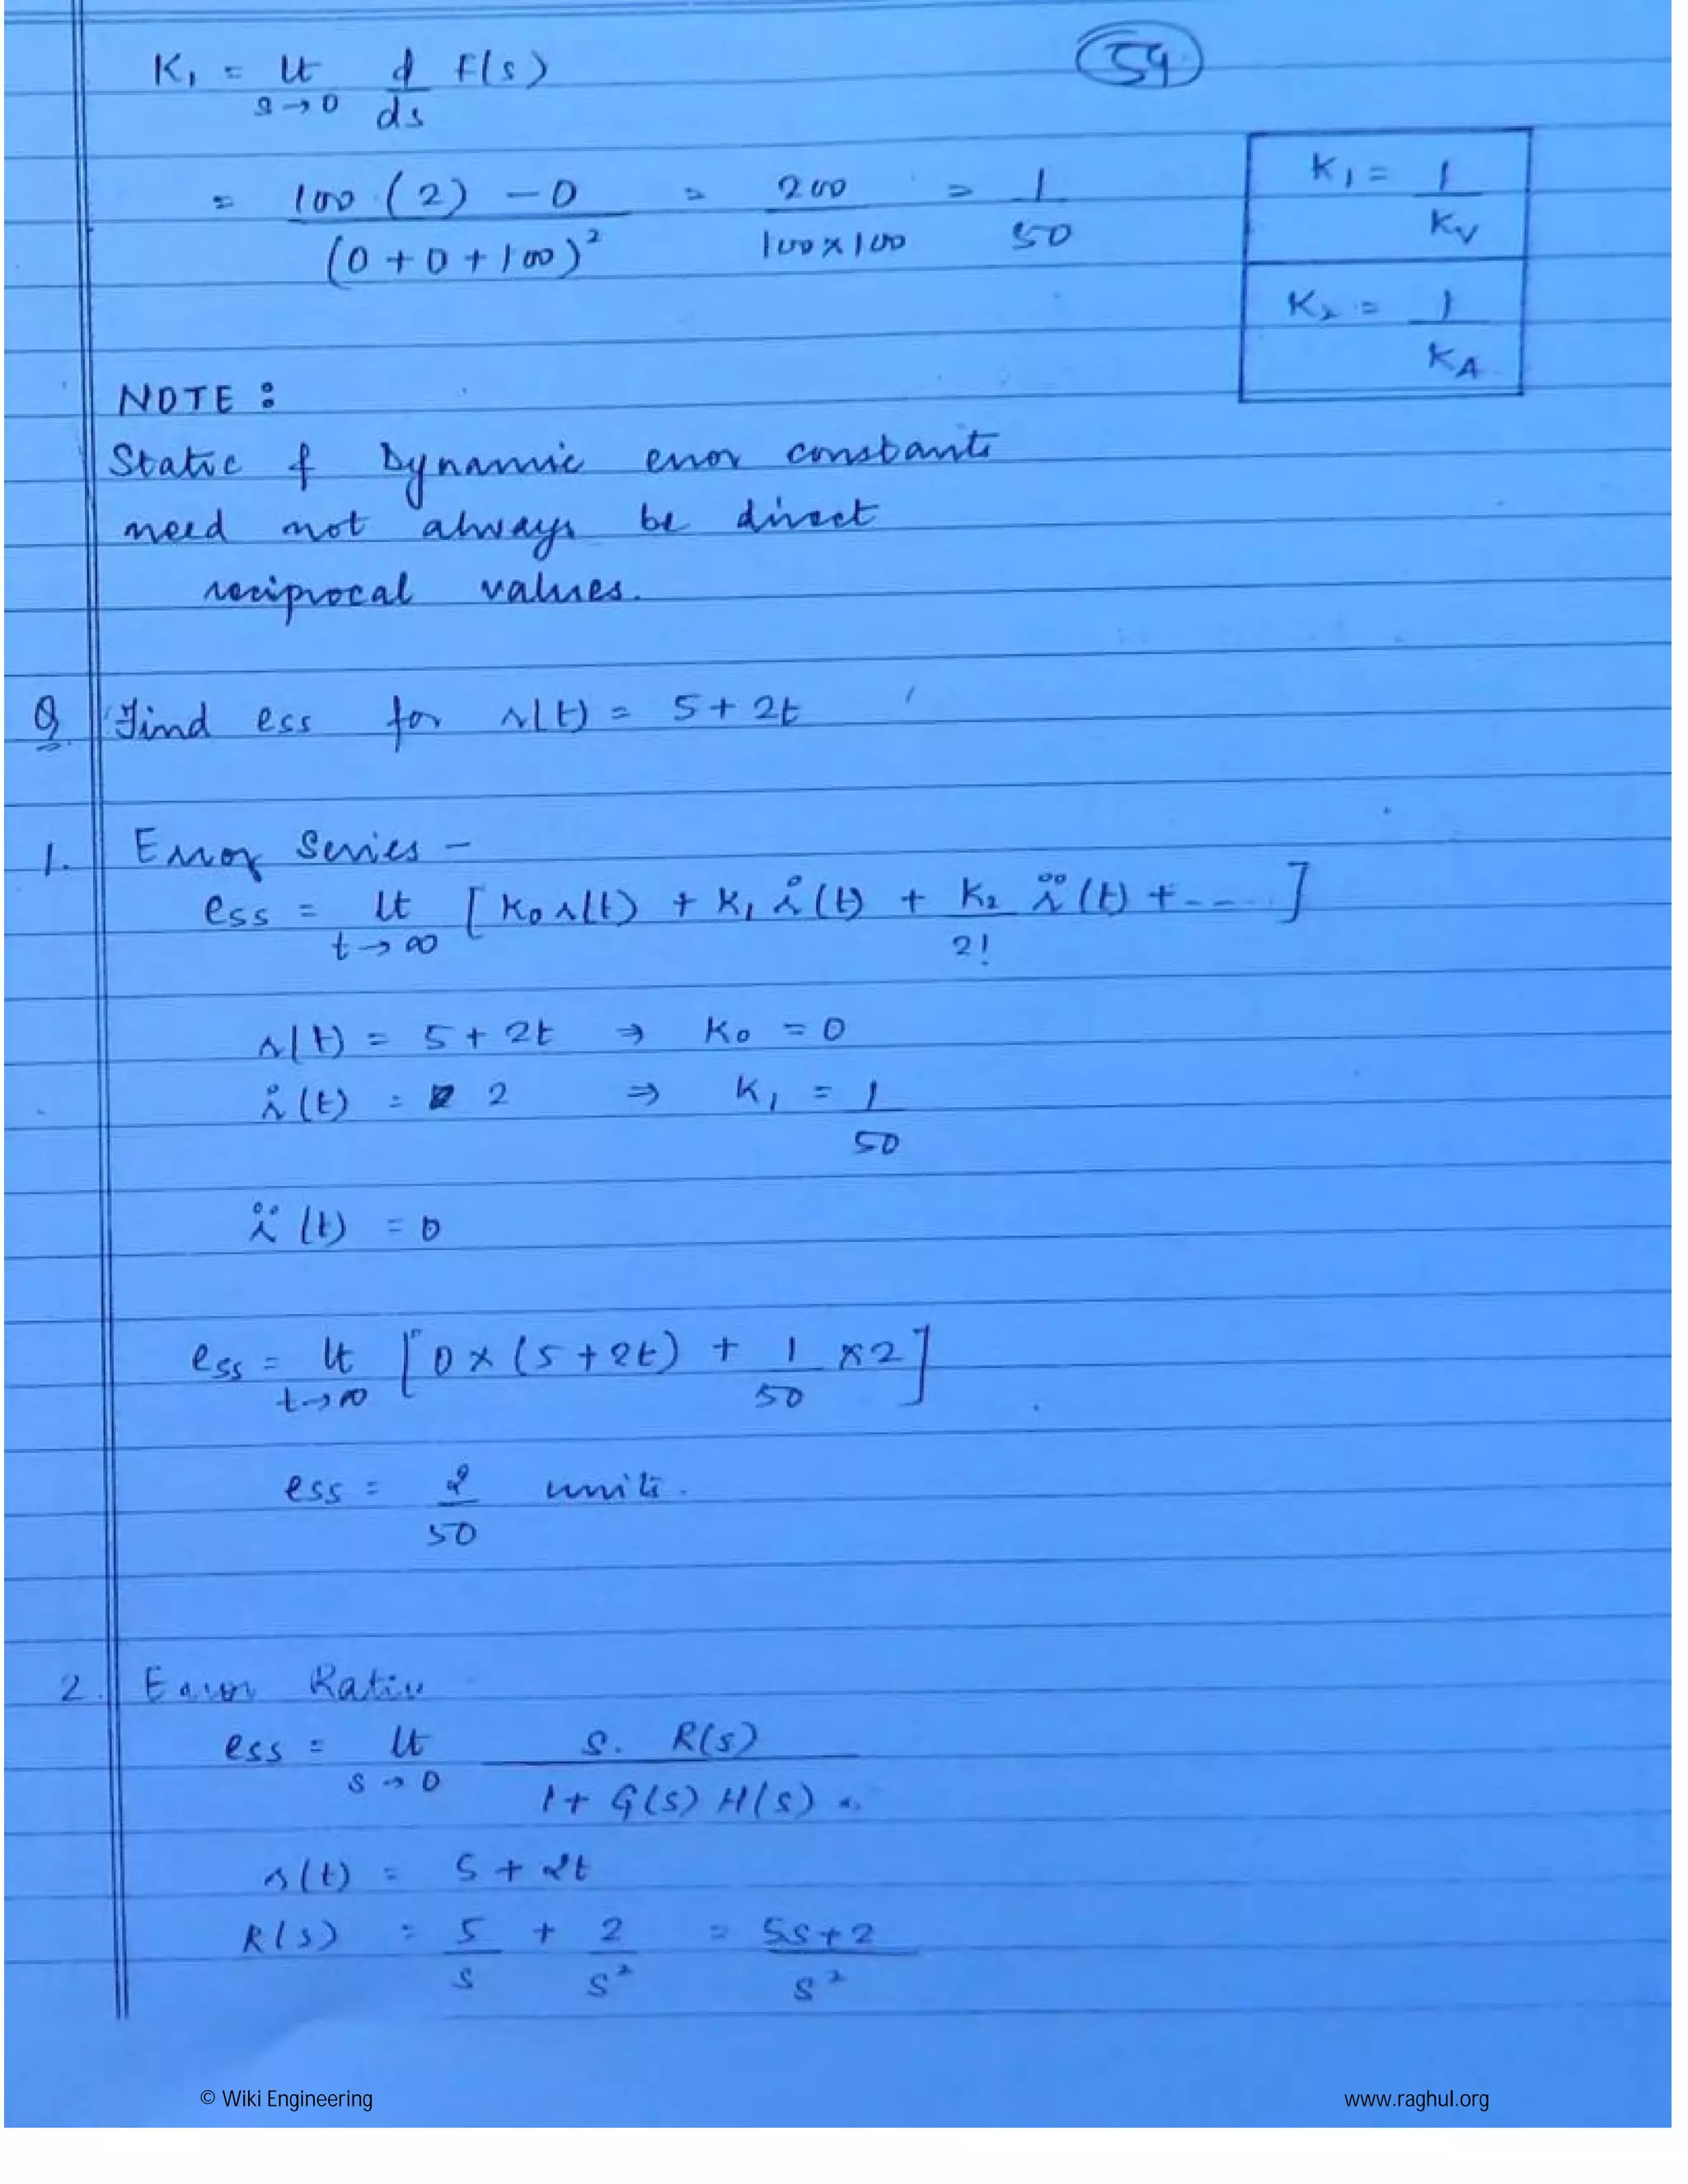 54
K₁ = lt s→0 d/ds F(s)
= 100 (2) − 0 / (0 + 0 + 100)² = 200 / 100×100 = 1/50
K₁ = 1/Kv
K₂ = 1/KA
NOTE :
Static & Dynamic error constants
need not always be direct
reciprocal values.
Q. Find ess for r(t) = 5 + 2t
1. Error Series –
ess = lt t→∞ [ K₀ r(t) + K₁ ṙ(t) + K₂/2! r̈(t) + - - - ]
r(t) = 5 + 2t ⇒ K₀ = 0
ṙ(t) = 2 ⇒ K₁ = 1/50
r̈(t) = 0
ess = lt t→∞ [ 0 × (5 + 2t) + 1/50 × 2 ]
ess = 2/50 units.
2. Error Ratio
ess = lt s→0 s. R(s) / 1 + G(s) H(s)
r(t) = 5 + 2t
R(s) = 5/s + 2/s² = 5s+2 / s²
© Wiki Engineering
www.raghul.org